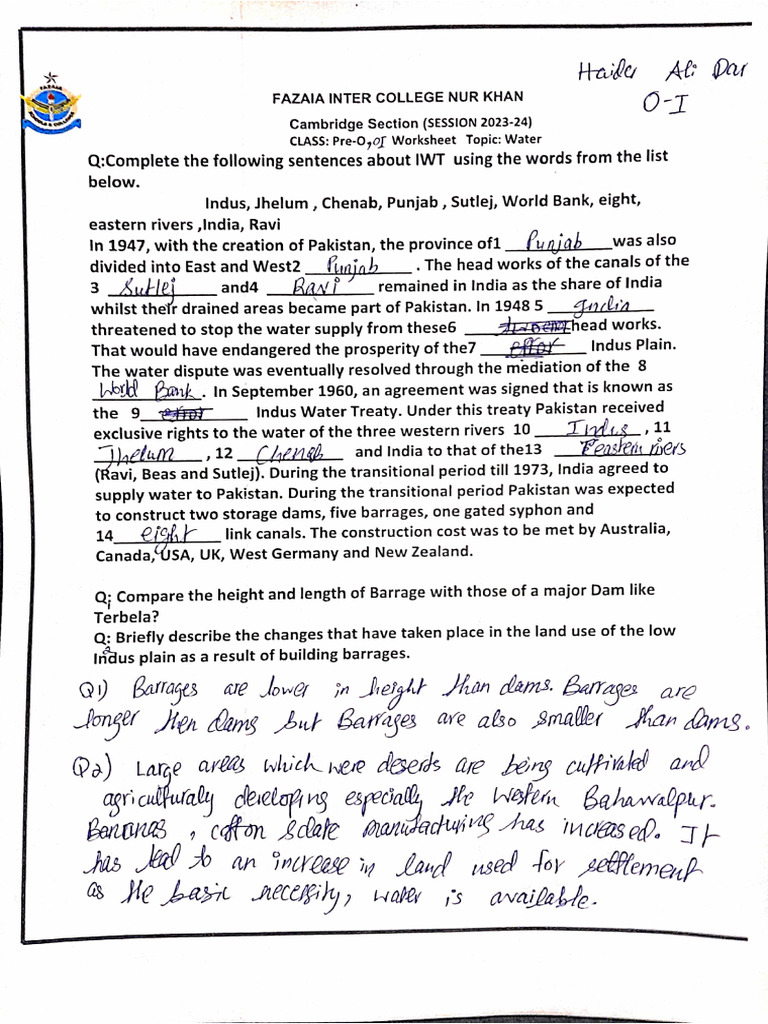 Haider Ali Dar
O-I
FAZAIA
SCHOOLS & COLLEGES
FAZAIA INTER COLLEGE NUR KHAN
Cambridge Section (SESSION 2023-24)
CLASS: Pre-O, OI Worksheet Topic: Water
Q:Complete the following sentences about IWT using the words from the list
below.
Indus, Jhelum , Chenab, Punjab , Sutlej, World Bank, eight,
eastern rivers ,India, Ravi
In 1947, with the creation of Pakistan, the province of1 Punjab was also
divided into East and West2 Punjab . The head works of the canals of the
3 Sutlej and4 Ravi remained in India as the share of India
whilst their drained areas became part of Pakistan. In 1948 5 India
threatened to stop the water supply from these6 head works.
That would have endangered the prosperity of the7 Indus Plain.
The water dispute was eventually resolved through the mediation of the 8
World Bank. In September 1960, an agreement was signed that is known as
the 9 Indus Water Treaty. Under this treaty Pakistan received
exclusive rights to the water of the three western rivers 10 Indus , 11
Jhelum , 12 Chenab and India to that of the13 eastern rivers
(Ravi, Beas and Sutlej). During the transitional period till 1973, India agreed to
supply water to Pakistan. During the transitional period Pakistan was expected
to construct two storage dams, five barrages, one gated syphon and
14 eight link canals. The construction cost was to be met by Australia,
Canada, USA, UK, West Germany and New Zealand.
Q1: Compare the height and length of Barrage with those of a major Dam like
Terbela?
Q2: Briefly describe the changes that have taken place in the land use of the low
Indus plain as a result of building barrages.
Q1) Barrages are lower in height than dams. Barrages are
longer then dams but Barrages are also smaller than dams.
Q2) Large areas which were deserts are being cultivated and
agriculturaly developing especially the Western Bahawalpur.
Bananas, cotton & date manufacturing has increased. It
has lead to an increase in land used for settlement
as the basic necessity, water is available.